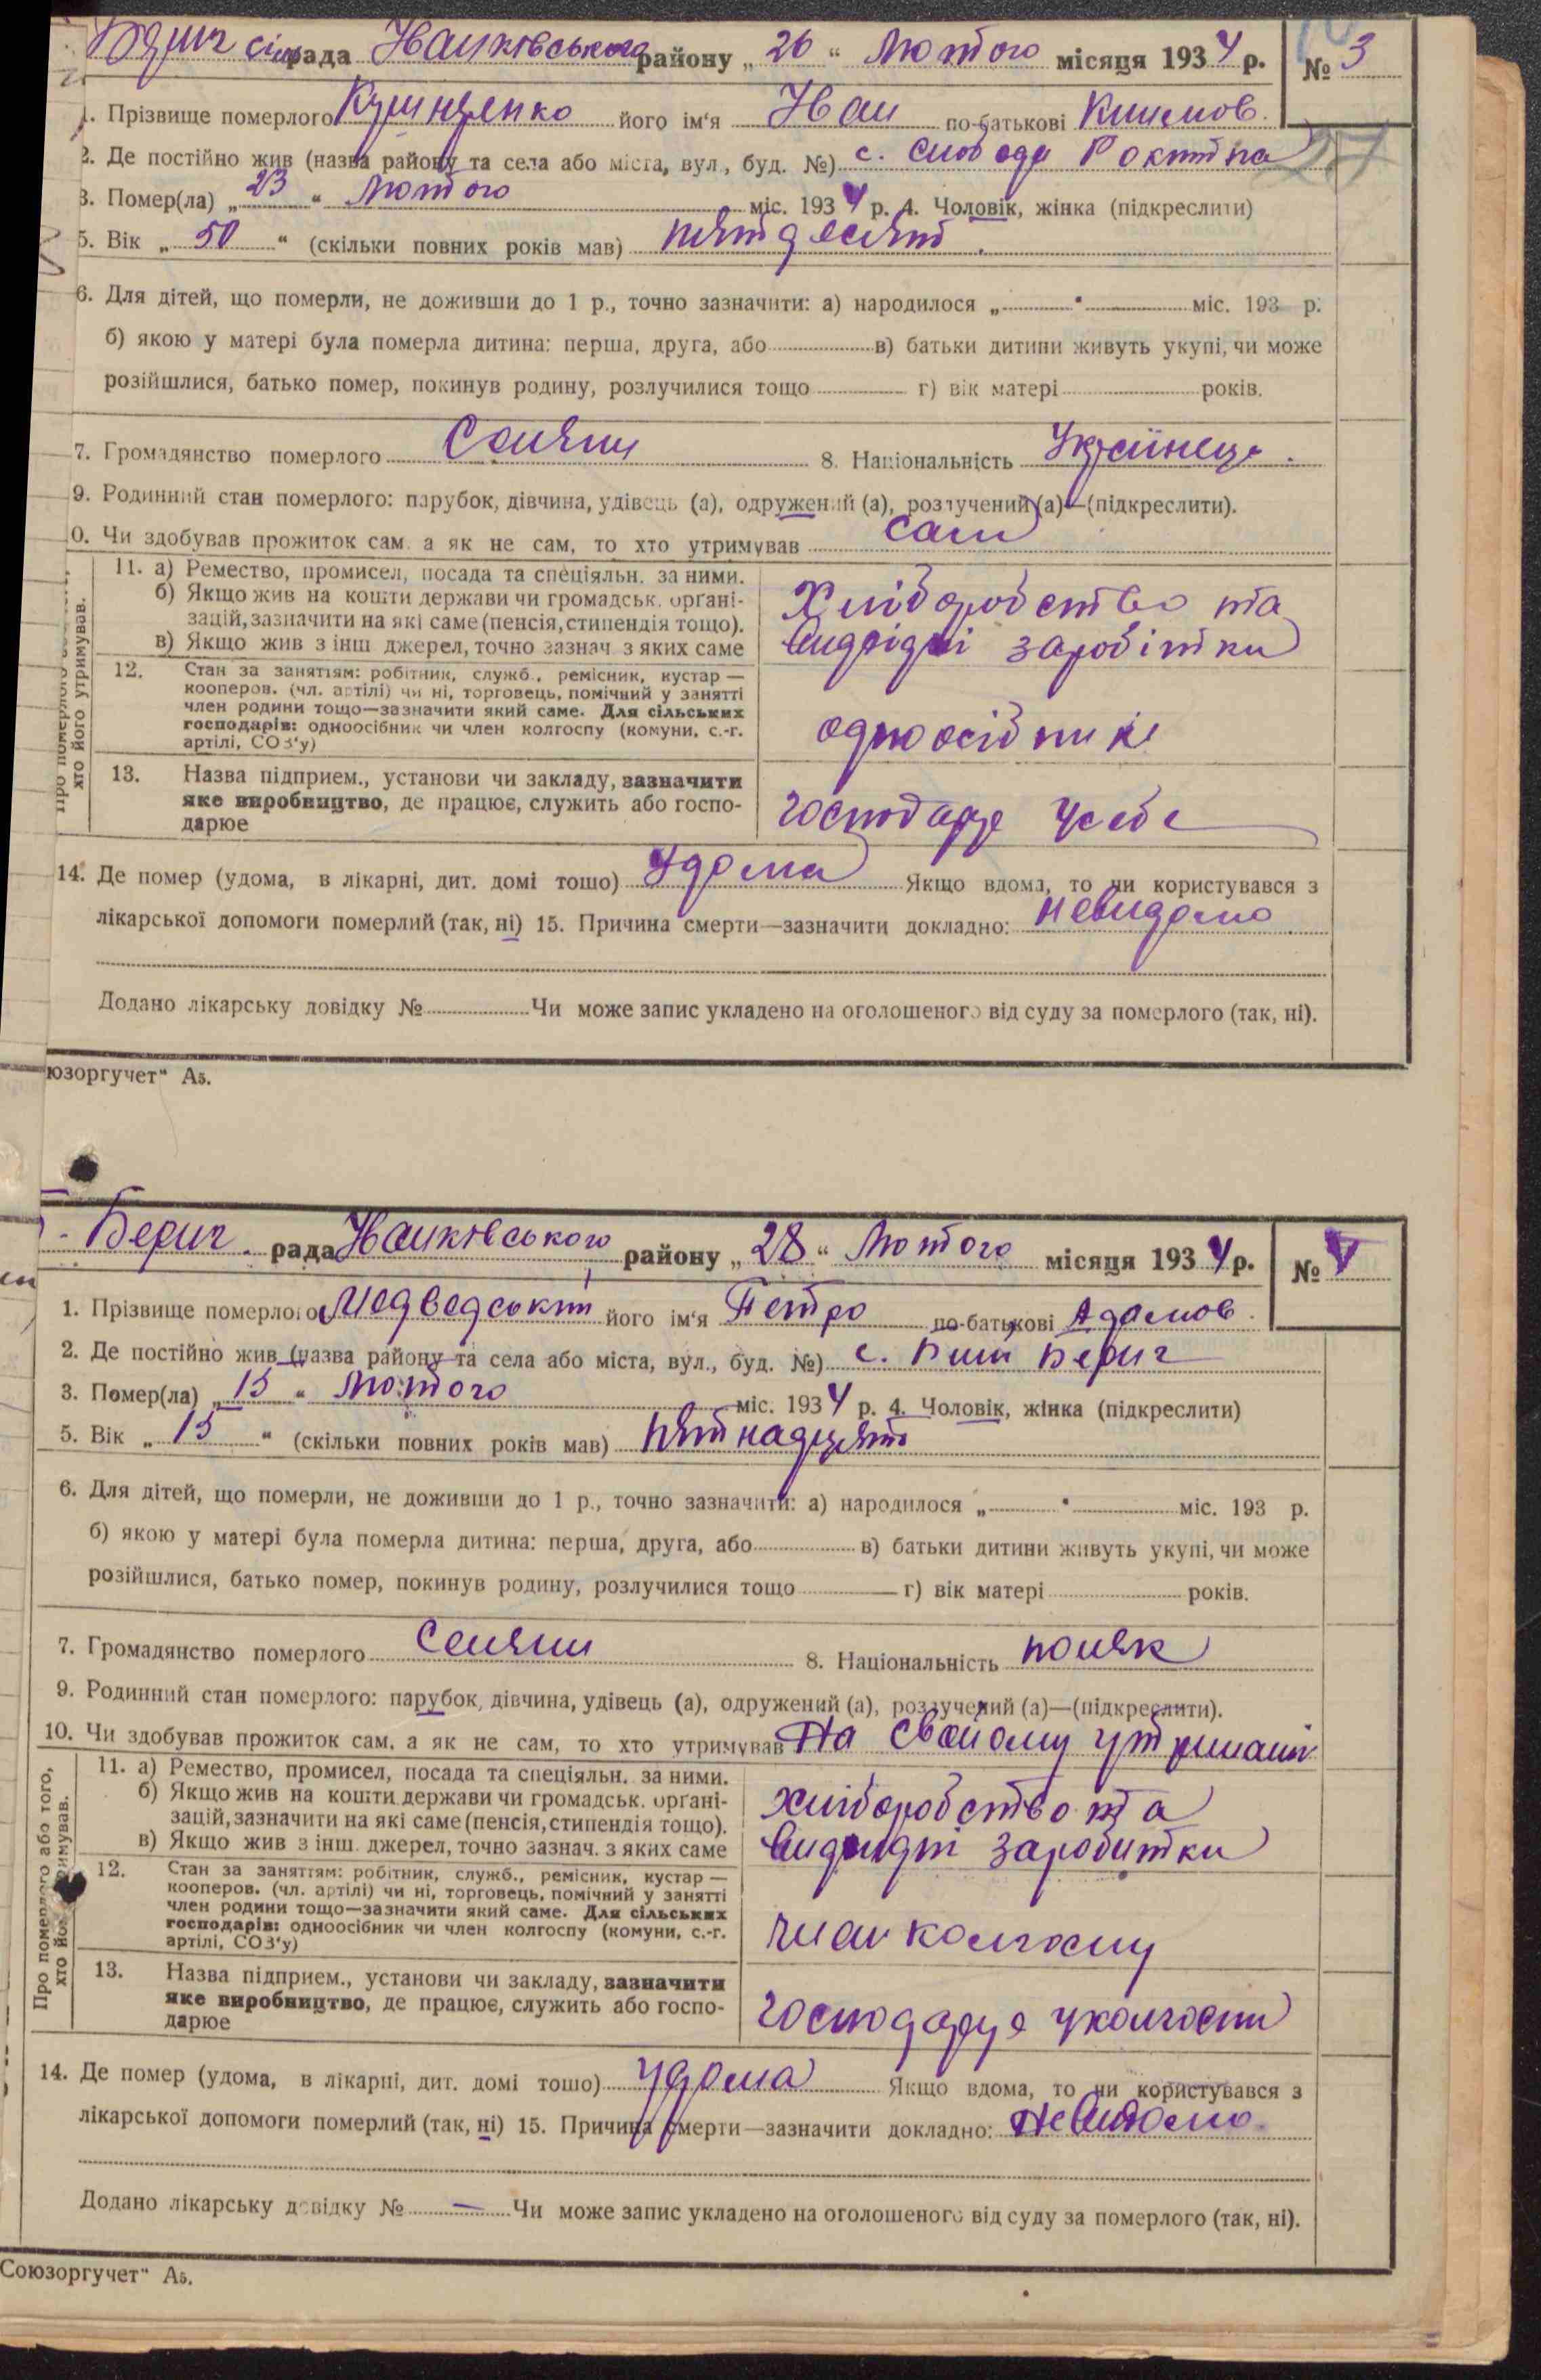 рада Іванківського району „ 26 “ Лютого місяця 1934 р. № 3
1. Прізвище померлого його ім‘я Іван по-батькові Климов.
2. Де постійно жив (назва району та села або міста, вул., буд. №) с. слобода
3. Помер(ла) „ 23 “ Лютого міс. 1934 р. 4. Чоловік, жінка (підкреслити)
5. Вік „ 50 “ (скільки повних років мав) пятдесят.
6. Для дітей, що померли, не доживши до 1 р., точно зазначити: а) народилося „ “ міс. 193 р.
б) якою у матері була померла дитина: перша, друга, або в) батьки дитини живуть укупі, чи може
розійшлися, батько помер, покинув родину, розлучилися тощо г) вік матері років.
7. Громадянство померлого Селянин 8. Національність Українець.
9. Родинний стан померлого: парубок, дівчина, удівець (а), одружений (а), розлучений (а)—(підкреслити).
0. Чи здобував прожиток сам, а як не сам, то хто утримував сам
хто його утримував.
11. а) Ремество, промисел, посада та спеціяльн. за ними.
б) Якщо жив на кошти держави чи громадськ. органі-
зацій, зазначити на які саме (пенсія, стипендія тощо).
в) Якщо жив з інш джерел, точно зазнач. з яких саме
Хліборобство та
заробітки
12. Стан за занятіям: робітник, служб., ремісник, кустар —
кооперов. (чл. артілі) чи ні, торговець, помічний у занятті
член родини тощо—зазначити який саме. Для сільських
господарів: одноосібник чи член колгоспу (комуни, с.-г.
артілі, СОЗ‘у)
одноосібник
13. Назва підприем., установи чи закладу, зазначити
яке виробництво, де працює, служить або госпо-
дарює
господарує у себе
14. Де помер (удома, в лікарні, дит. домі тощо) Удома Якщо вдома, то чи користувався з
лікарської допомоги померлий (так, ні) 15. Причина смерти—зазначити докладно: невидомо
Додано лікарську довідку № Чи може запис укладено на оголошеного від суду за померлого (так, ні).
юзоргучет“ А5.
Берич. рада Іванківського району „ 28 “ Лютого місяця 1934 р. №
1. Прізвище померлого Медведський його ім‘я Петро по-батькові Адамов.
2. Де постійно жив (назва району та села або міста, вул., буд. №) с. Берич
3. Помер(ла) „ 15 “ Лютого міс. 1934 р. 4. Чоловік, жінка (підкреслити)
5. Вік „ 15 “ (скільки повних років мав) пятнадцять
6. Для дітей, що померли, не доживши до 1 р., точно зазначити: а) народилося „ “ міс. 193 р.
б) якою у матері була померла дитина: перша, друга, або в) батьки дитини живуть укупі, чи може
розійшлися, батько помер, покинув родину, розлучилися тощо г) вік матері років.
7. Громадянство померлого Селянин 8. Національність поляк
9. Родинний стан померлого: парубок, дівчина, удівець (а), одружений (а), розлучений (а)—(підкреслити).
10. Чи здобував прожиток сам, а як не сам, то хто утримував На свойому
Про померлого або того,
11. а) Ремество, промисел, посада та спеціяльн. за ними.
б) Якщо жив на кошти держави чи громадськ. органі-
зацій, зазначити на які саме (пенсія, стипендія тощо).
в) Якщо жив з інш. джерел, точно зазнач. з яких саме
хліборобство та
заробитки
12. Стан за заняттям: робітник, служб., ремісник, кустар —
кооперов. (чл. артілі) чи ні, торговець, помічний у занятті
член родини тощо—зазначити який саме. Для сільських
господарів: одноосібник чи член колгоспу (комуни, с.-г.
артілі, СОЗ‘у)
член колгоспу
13. Назва підприем., установи чи закладу, зазначити
яке виробництво, де працює, служить або госпо-
дарює
господарує у колгоспи
14. Де помер (удома, в лікарні, дит. домі тощо) удома Якщо вдома, то чи користувався з
лікарської допомоги померлий (так, ні) 15. Причина смерти—зазначити докладно: Невидомо.
Додано лікарську довідку № — Чи може запис укладено на оголошеного від суду за померлого (так, ні).
Союзоргучет“ А5.